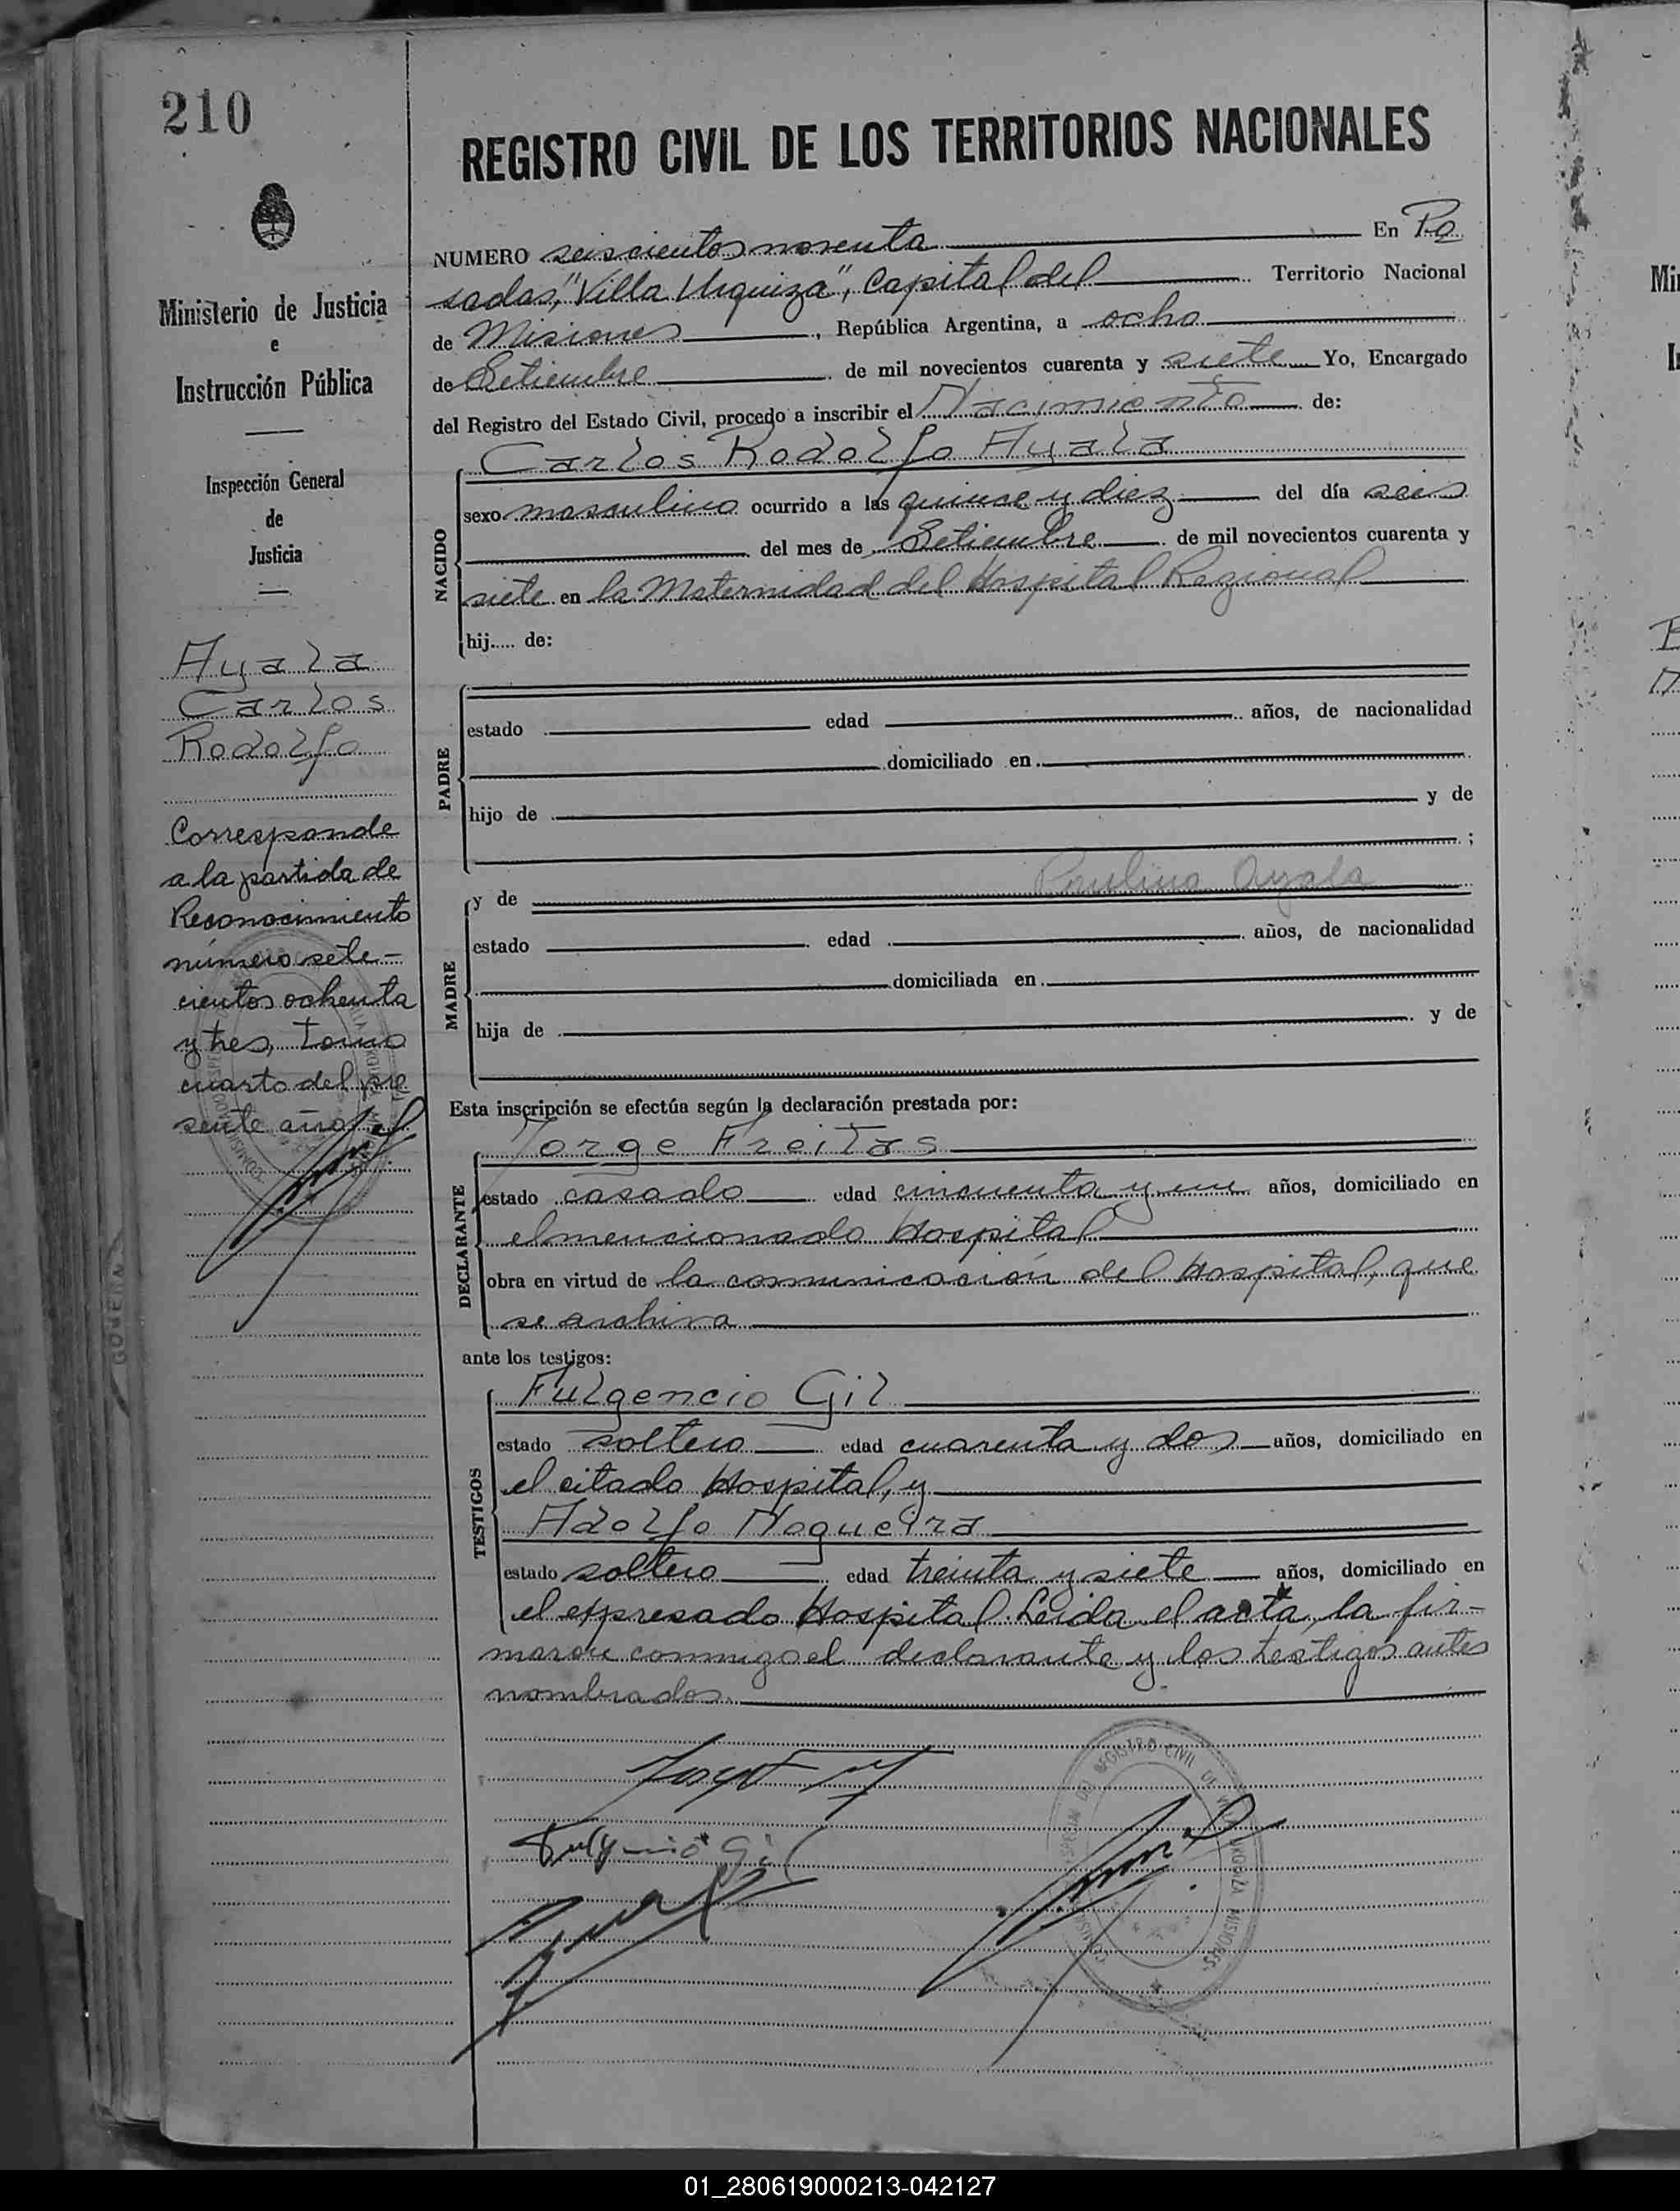 210
REGISTRO CIVIL DE LOS TERRITORIOS NACIONALES
Ministerio de Justicia
e
Instrucción Pública
Inspección General
de
Justicia
Ayala
Carlos
Rodolfo
Corresponde
a la partida de
Reconocimiento
número sete-
cientos ochenta
y tres, tomo
cuarto del pre
sente año
NUMERO seiscientos noventa En Po
sadas, "Villa Urquiza", Capital del Territorio Nacional
de Misiones, República Argentina, a ocho
de Setiembre de mil novecientos cuarenta y siete Yo, Encargado
del Registro del Estado Civil, procedo a inscribir el Nacimiento de:
Carlos Rodolfo Ayala
NACIDO
sexo masculino ocurrido a las quince y diez del día seis
del mes de Setiembre de mil novecientos cuarenta y
siete en la Maternidad del Hospital Regional
hij..... de:
PADRE
estado edad años, de nacionalidad
domiciliado en
hijo de y de
;
Paulina Ayala
MADRE
y de
estado edad años, de nacionalidad
domiciliada en
hija de y de
Esta inscripción se efectúa según la declaración prestada por:
Jorge Freitas
DECLARANTE
estado casado edad cincuenta y un años, domiciliado en
el mencionado Hospital
obra en virtud de la comunicación del Hospital, que
se archiva
ante los testigos:
Fulgencio Gil
TESTIGOS
estado soltero edad cuarenta y dos años, domiciliado en
el citado Hospital, y
Adolfo Nogueira
estado soltero edad treinta y siete años, domiciliado en
el expresado Hospital. Leida el acta, la fir-
maron conmigo el declarante y los testigos antes
nombrados.
Fulgencio Gil
REGISTRO CIVIL DE VILLA URQUIZA MISIONES
01_280619000213-042127